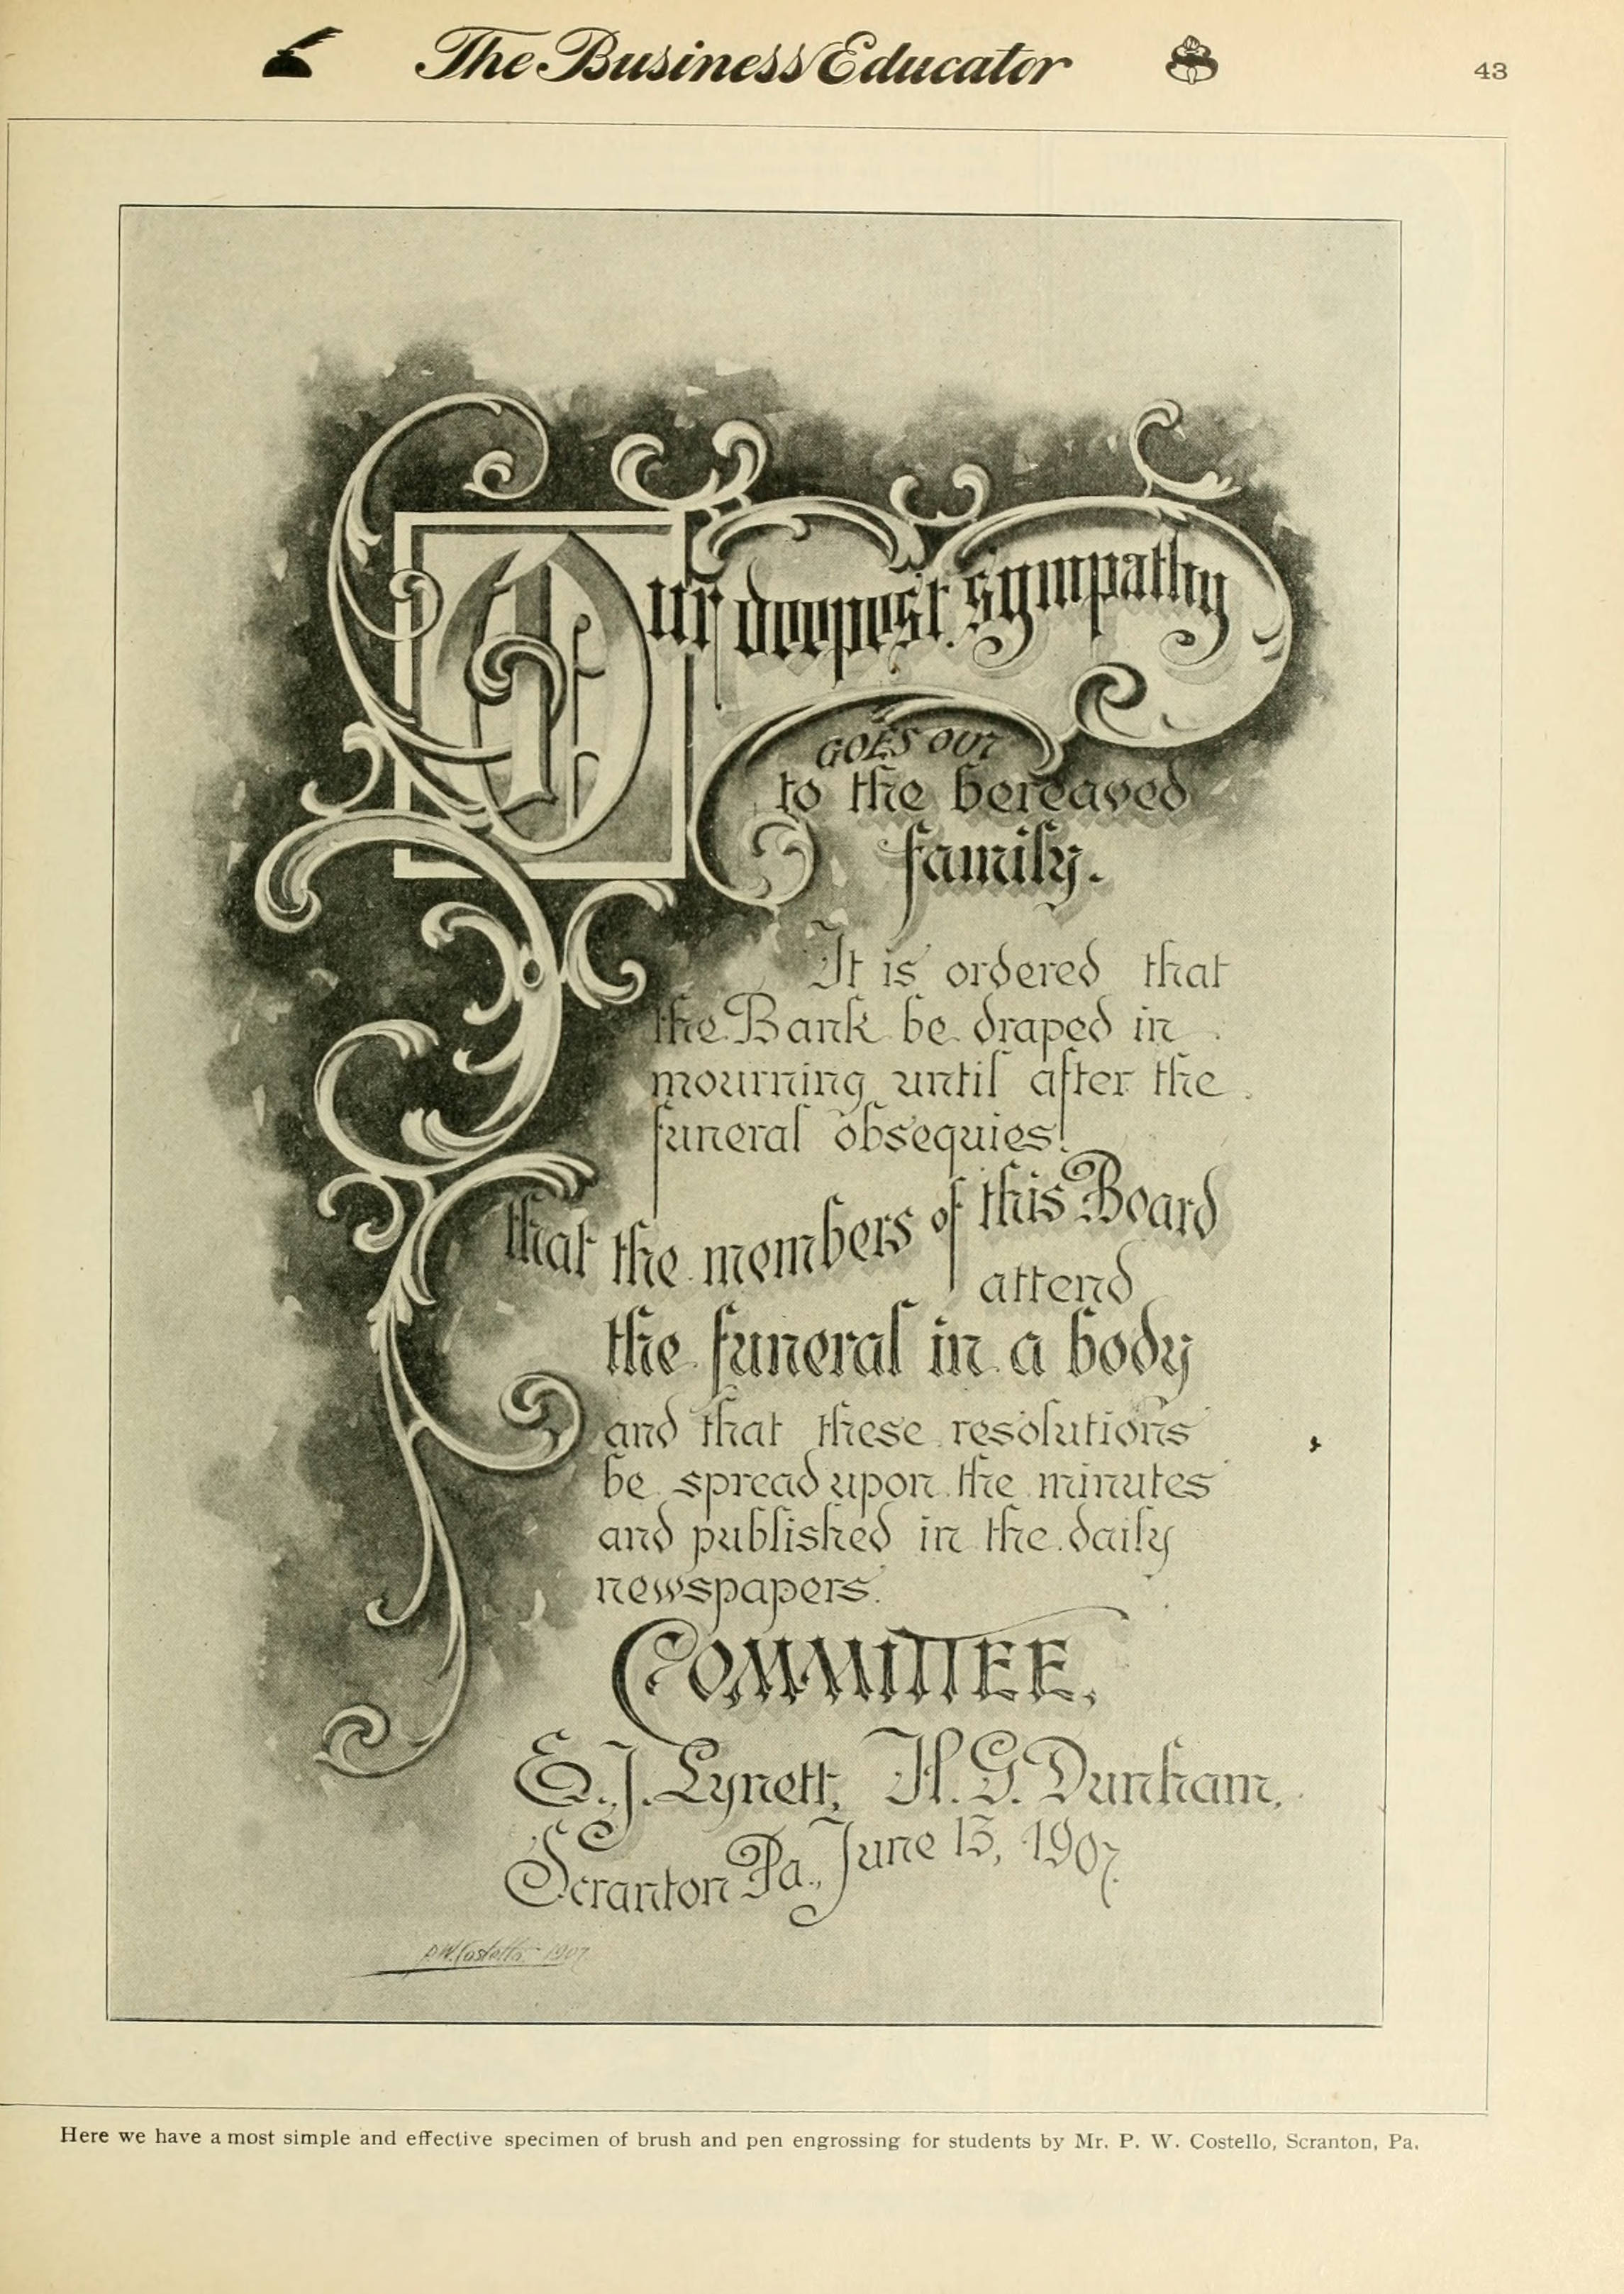 The Business Educator
43
Our deepest sympathy
GOES OUT
to the bereaved
family.
It is ordered that
the Bank be draped in
mourning until after the
funeral obsequies.
that the members of this Board
attend
the funeral in a body
and that these resolutions
be spread upon the minutes
and published in the daily
newspapers.
COMMITTEE,
E.J. Lynett, H.G. Dunham,
Scranton Pa., June 13, 1907.
P.W. Costello 1907
Here we have a most simple and effective specimen of brush and pen engrossing for students by Mr. P. W. Costello, Scranton, Pa.